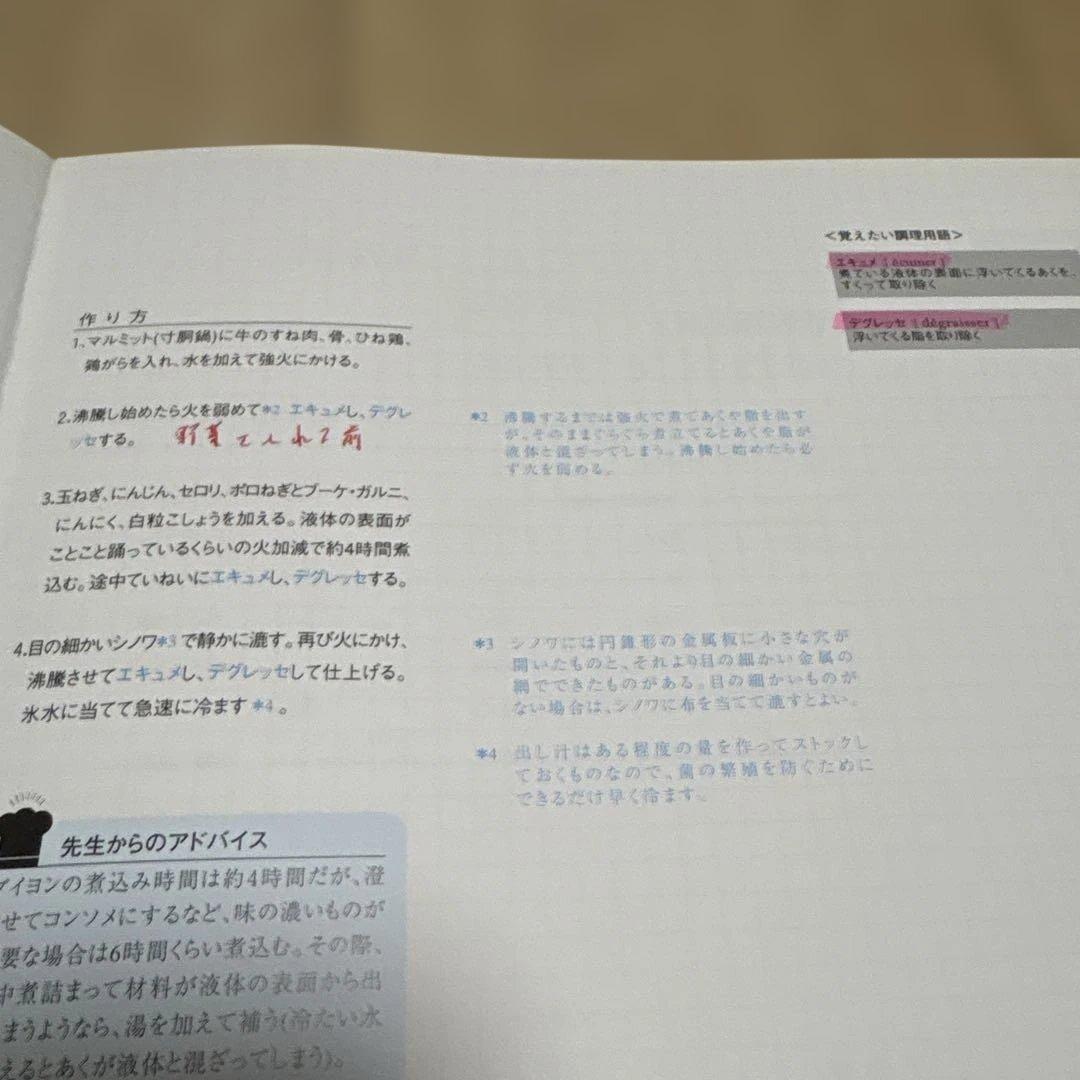 ＜覚えたい調理用語＞
エキュメ［écumer］
煮ている液体の表面に浮いてくるあくを、
すくって取り除く
デグレッセ［dégraisser］
浮いてくる脂を取り除く
作り方
1.マルミット(寸胴鍋)に牛のすね肉、骨、ひね鶏、
鶏がらを入れ、水を加えて強火にかける。
2.沸騰し始めたら火を弱めて*2 エキュメし、デグレ
ッセする。 野菜て入れる前
3.玉ねぎ、にんじん、セロリ、ポロねぎとブーケ・ガルニ、
にんにく、白粒こしょうを加える。液体の表面が
ことこと踊っているくらいの火加減で約4時間煮
込む。途中ていねいにエキュメし、デグレッセする。
4.目の細かいシノワ*3で静かに漉す。再び火にかけ、
沸騰させてエキュメし、デグレッセして仕上げる。
氷水に当てて急速に冷ます*4。
*2 沸騰するまでは強火で煮てあくや脂を出す
が、そのままぐらぐら煮立てるとあくや脂が
液体と混ざってしまう。沸騰し始めたら必
ず火を弱める。
*3 シノワには円錐形の金属板に小さな穴が
開いたものと、それより目の細かい金属の
網でできたものがある。目の細かいものが
ない場合は、シノワに布を当てて漉すとよい。
*4 出し汁はある程度の量を作ってストックし
ておくものなので、菌の繁殖を防ぐために
できるだけ早く冷ます。
先生からのアドバイス
イヨンの煮込み時間は約4時間だが、澄
せてコンソメにするなど、味の濃いものが
要な場合は6時間くらい煮込む。その際、
中煮詰まって材料が液体の表面から出
まうようなら、湯を加えて補う(冷たい水
えるとあくが液体と混ざってしまう)。